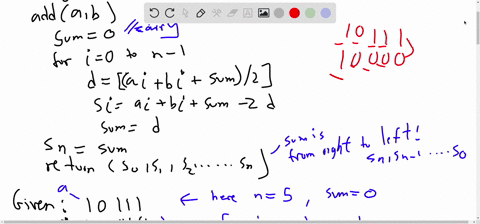 add(a,b)
sum=0 //carry
for i=0 to n-1
d=[(ai+bi+sum)/2]
si=ai+bi+sum-2d
sum=d
sn=sum
return (s0,s1,s2......sn)
sum is
from right to left!
sn,sn-1 ....s0
1 0 1 1 1
1 0 0 0 0
a
Given: 10 111 ← here n=5, sum=0